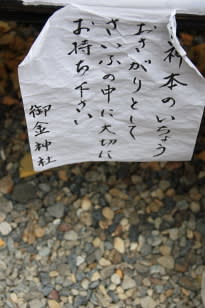 神木のいちょう
おさがりとして
さいふの中に大切に
お持ち下さい
御金神社